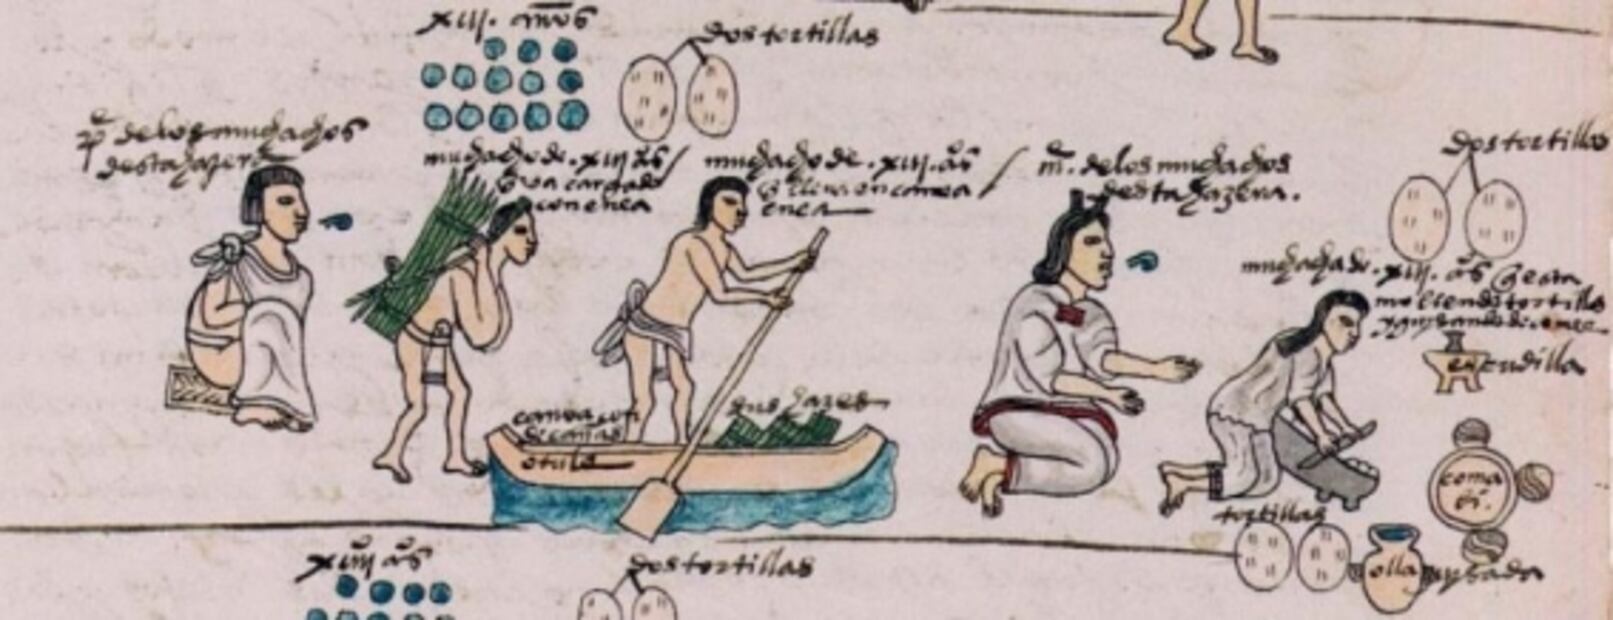 xiij. años
dos tortillas
pe. de los muchachos
desta hazera
muchacho de .xiij. as
q va cargado
con enea
muchacho de .xiij. as
q lleva en canoa
enea
me. de los muchachos
desta hazera.
dos tortillas
muchacha de .xiij. as q esta
moliendo tortillas
escudilla
canoa con
de cañas
o tule
sus hazes
comal
tortillas
olla
xiiij as
dos tortillas